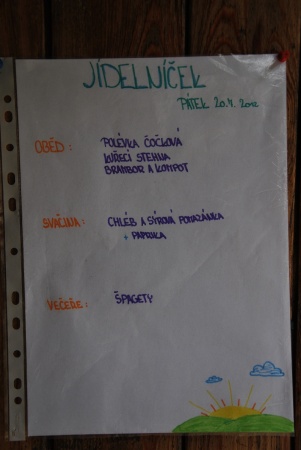 JÍDELNÍČEK
PÁTEK 20.4. 2012
OBĚD: POLÉVKA ČOČKOVÁ
KUŘECÍ STEHNA
BRAMBOR A KOMPOT
SVAČINA: CHLÉB A SÝROVÁ POMAZÁNKA
+ PAPRIKA
VEČEŘE: ŠPAGETY